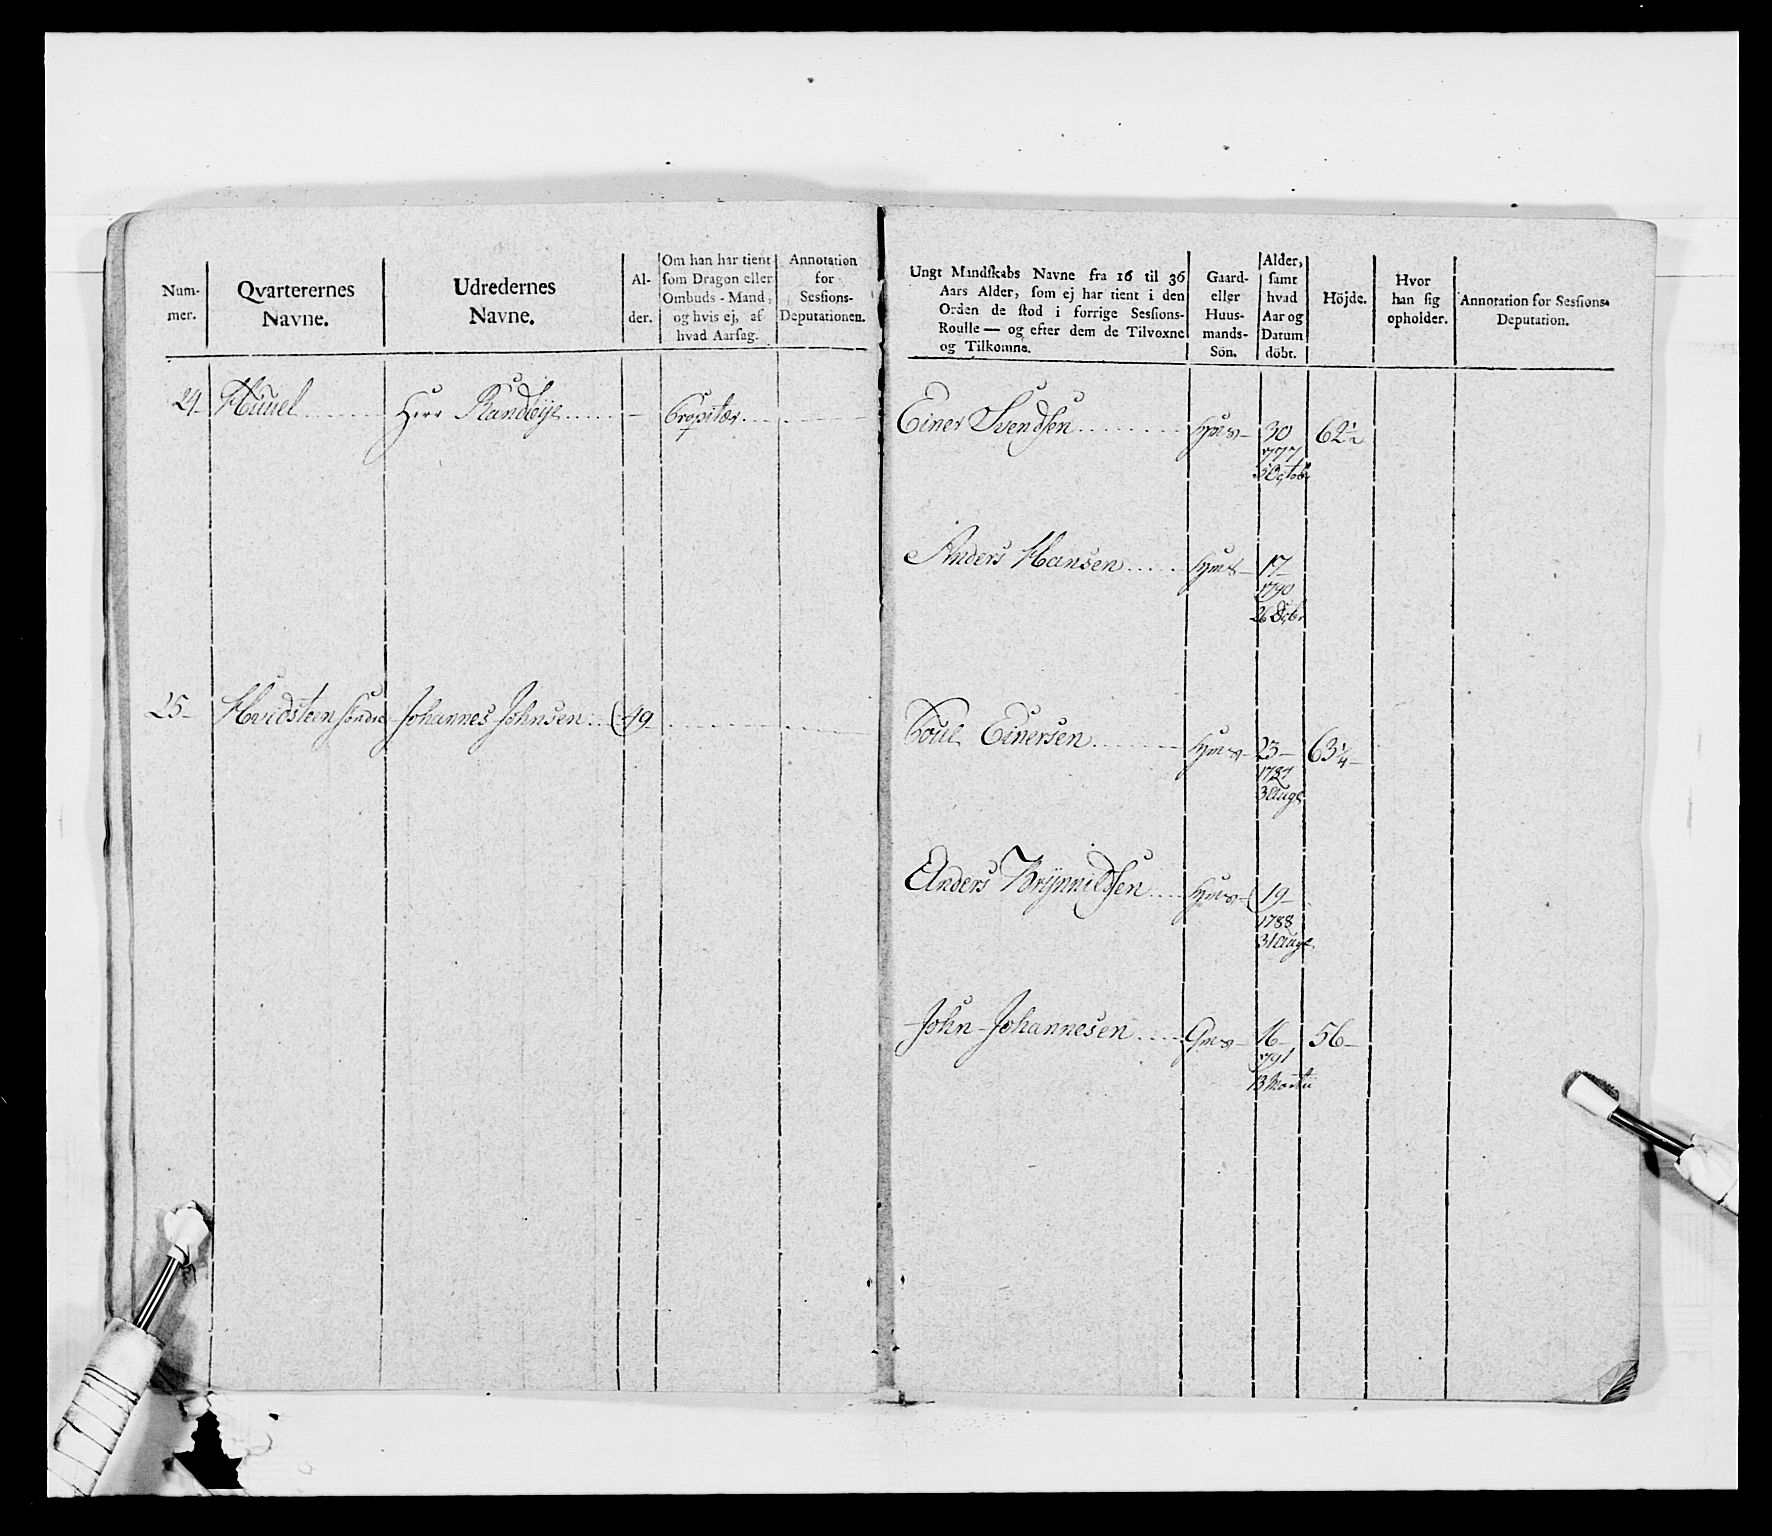 Num-
mer.
Qvarterernes
Navne.
Udredernes
Navne.
Al-
der.
Om han har tient
som Dragon eller
Ombuds-Mand,
og hvis ej, af
hvad Aarsag.
Annotation
for
Sessions-
Deputationen.
24 Huuel Herr Randbye Propitær
25 Hvidsteen søndre Johannes Johnsen 49
Ungt Mandskabs Navne fra 16 til 36
Aars Alder, som ej har tient i den
Orden de stod i forrige Sessions-
Roulle — og efter dem de Tilvoxne
og Tilkomne.
Gaard-
eller
Huus-
mands-
Sön.
Alder,
samt
hvad
Aar og
Datum
döbt.
Höjde.
Hvor
han sig
opholder.
Annotation for Sessions-
Deputation.
Einer Svendsen Hms 30 62½
777
5 Octob
Anders Hansen Hms 17
1790
26 Decbr
Poul Einersen Hms 23 63¼
1784
3 Aug
Anders Brynnildsen Hms 19
1788
31 Aug
John Johannesen Gms 16 56
791
13 Martii